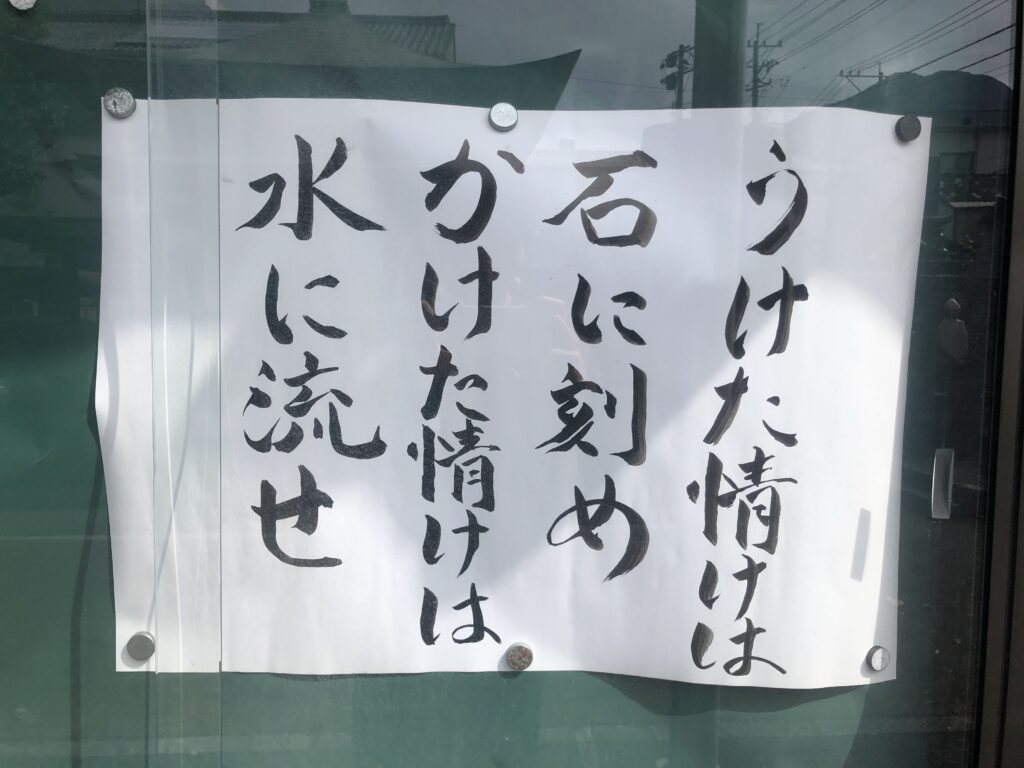 うけた情けは
石に刻め
かけた情けは
水に流せ